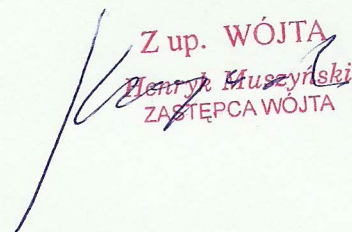 Z up. WÓJTA
Henryk Muszyński
ZASTĘPCA WÓJTA